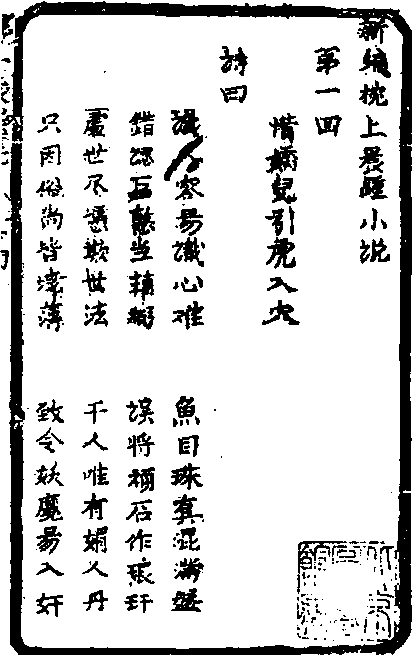 新編枕上晨鐘小説
第一回
惜螟兒引虎入穴
詩曰
識容易識心难 魚目珠真混滿盤
錯認當賴 误將碔石作琅玕
處世尽遵欺世法 千人唯有媚人丹
只因俗尚皆澆薄 致令妖魔易入奸